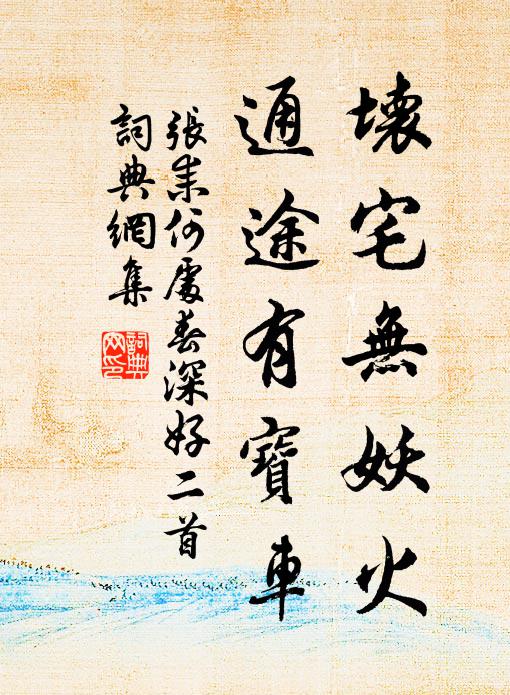 壞宅無妖火
通途有寶車
張耒何處春深好二首
詞典網集
詞典網印